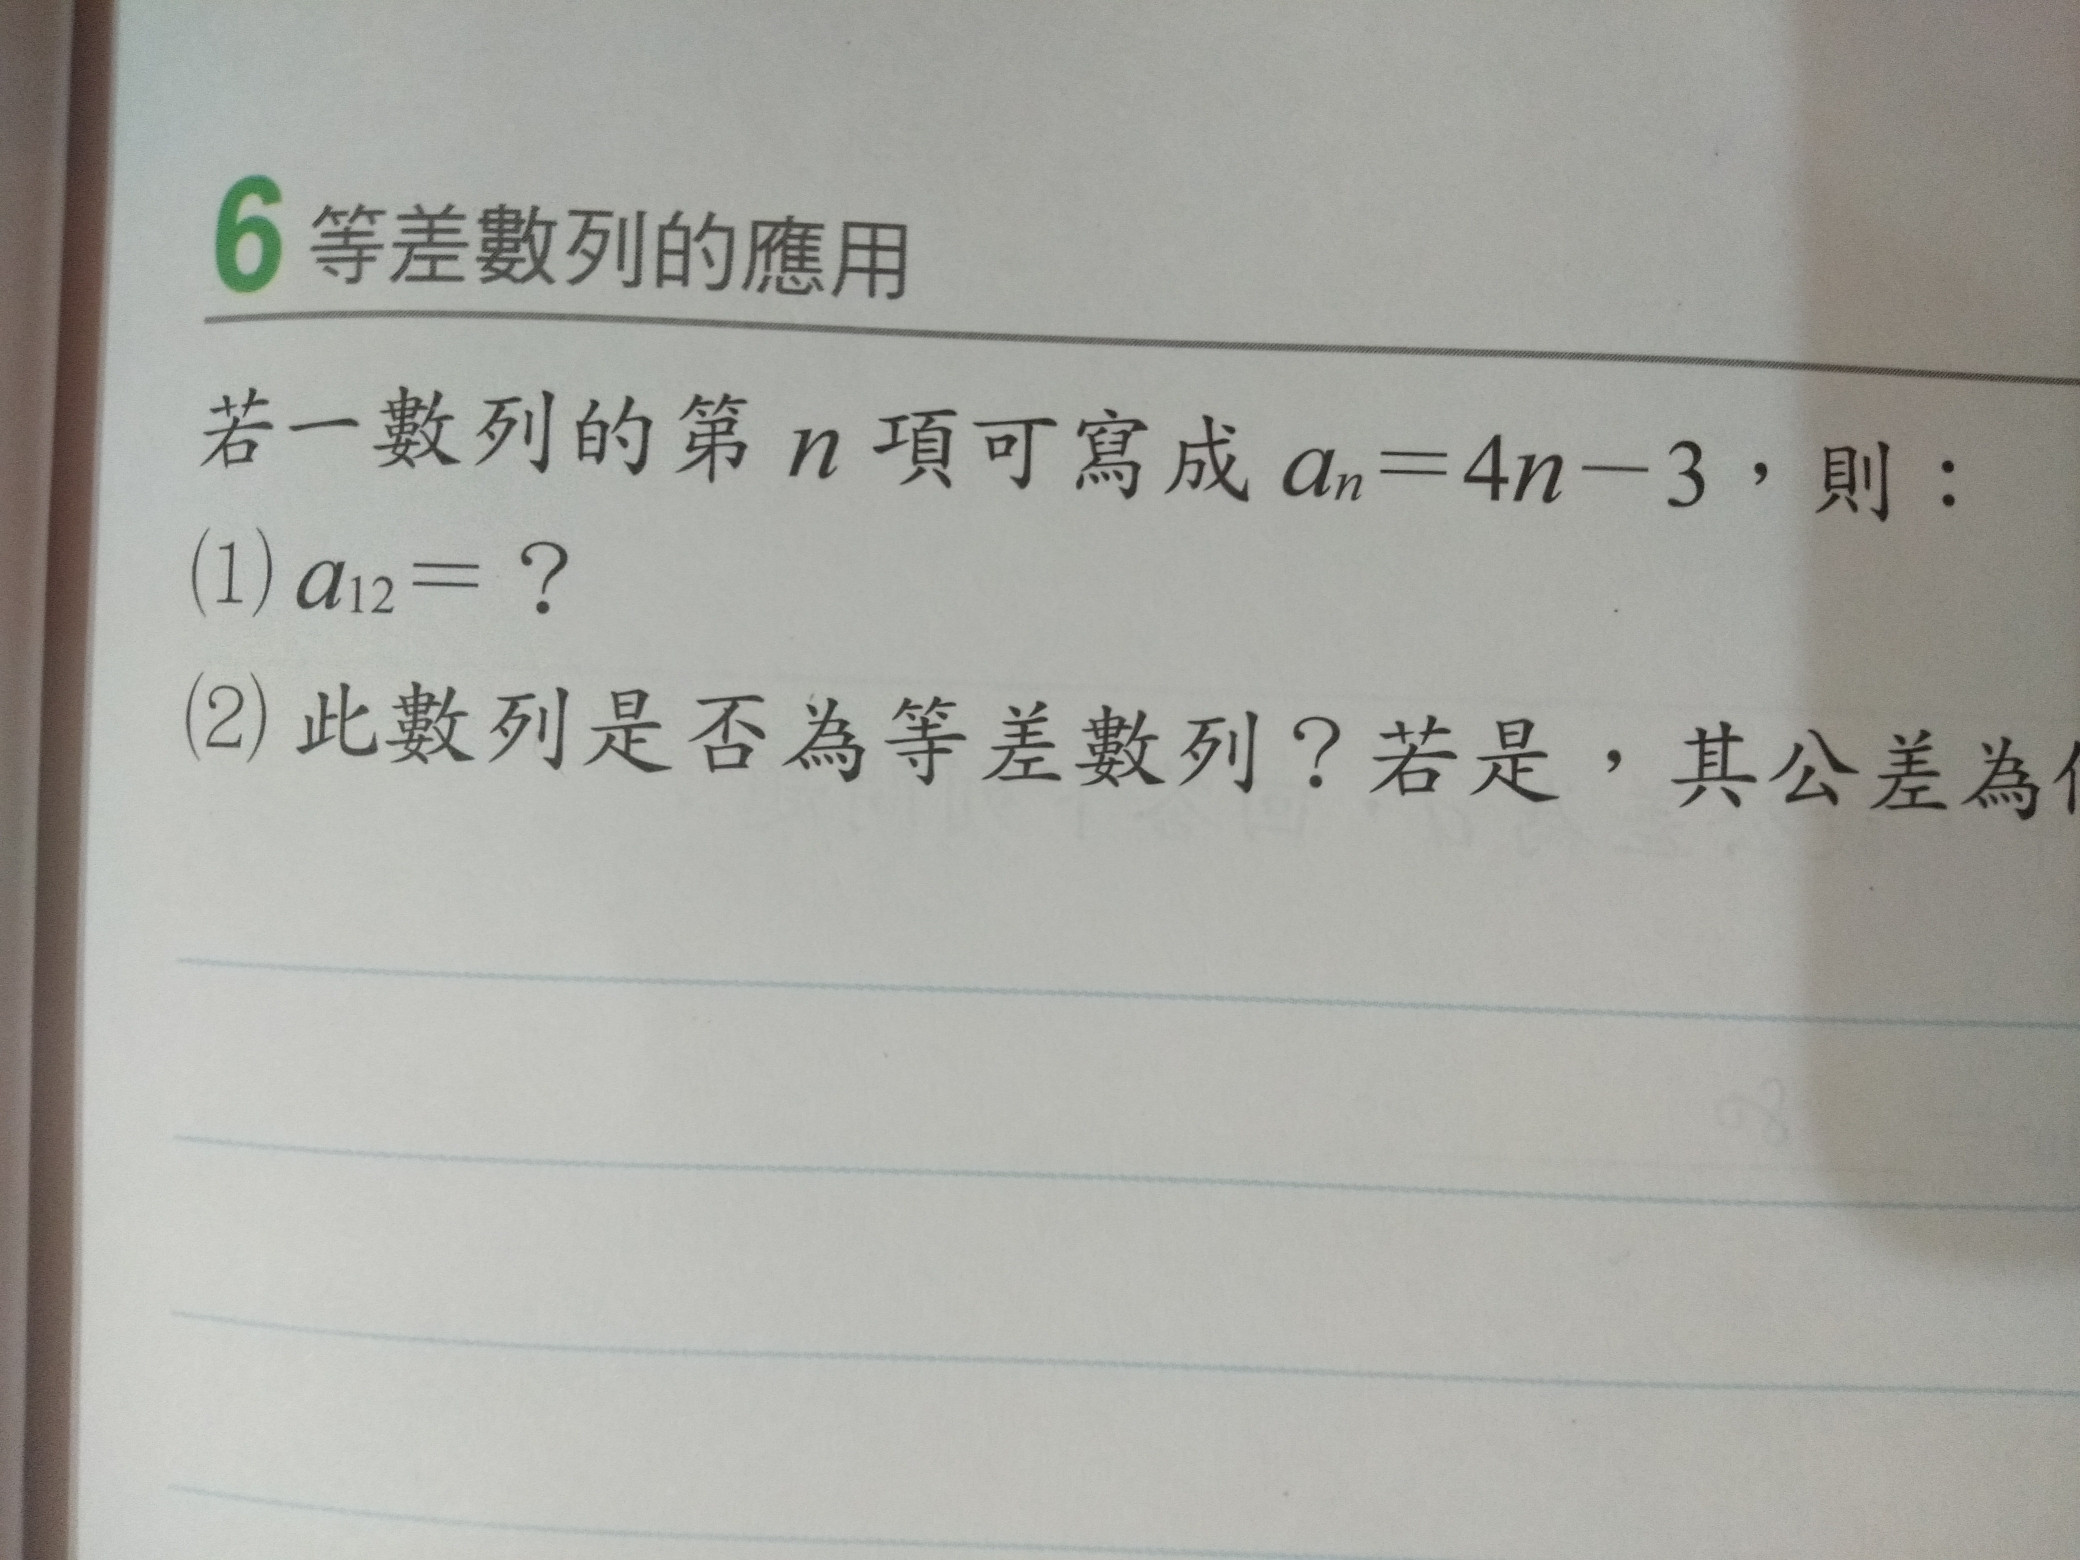 6 等差數列的應用
若一數列的第 n 項可寫成 aₙ=4n-3，則：
⑴ a₁₂=？
⑵ 此數列是否為等差數列？若是，其公差為